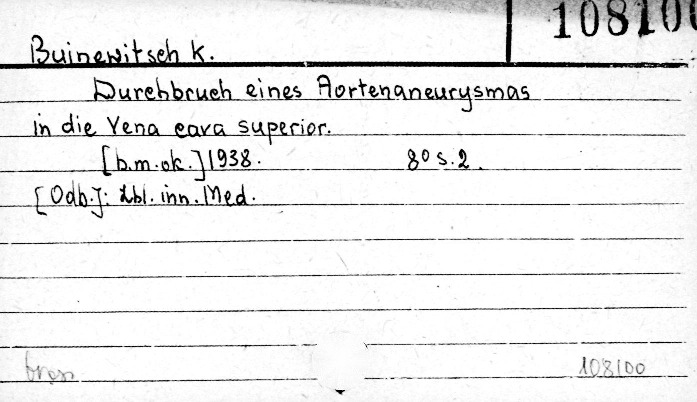 108100
Buinewitsch K.
Durchbruch eines Aortenaneurysmas
in die Vena cava superior.
[b.m.ok.] 1938. 8° s.2.
[Odb.]: Zbl. inn. Med.
brosz
108100